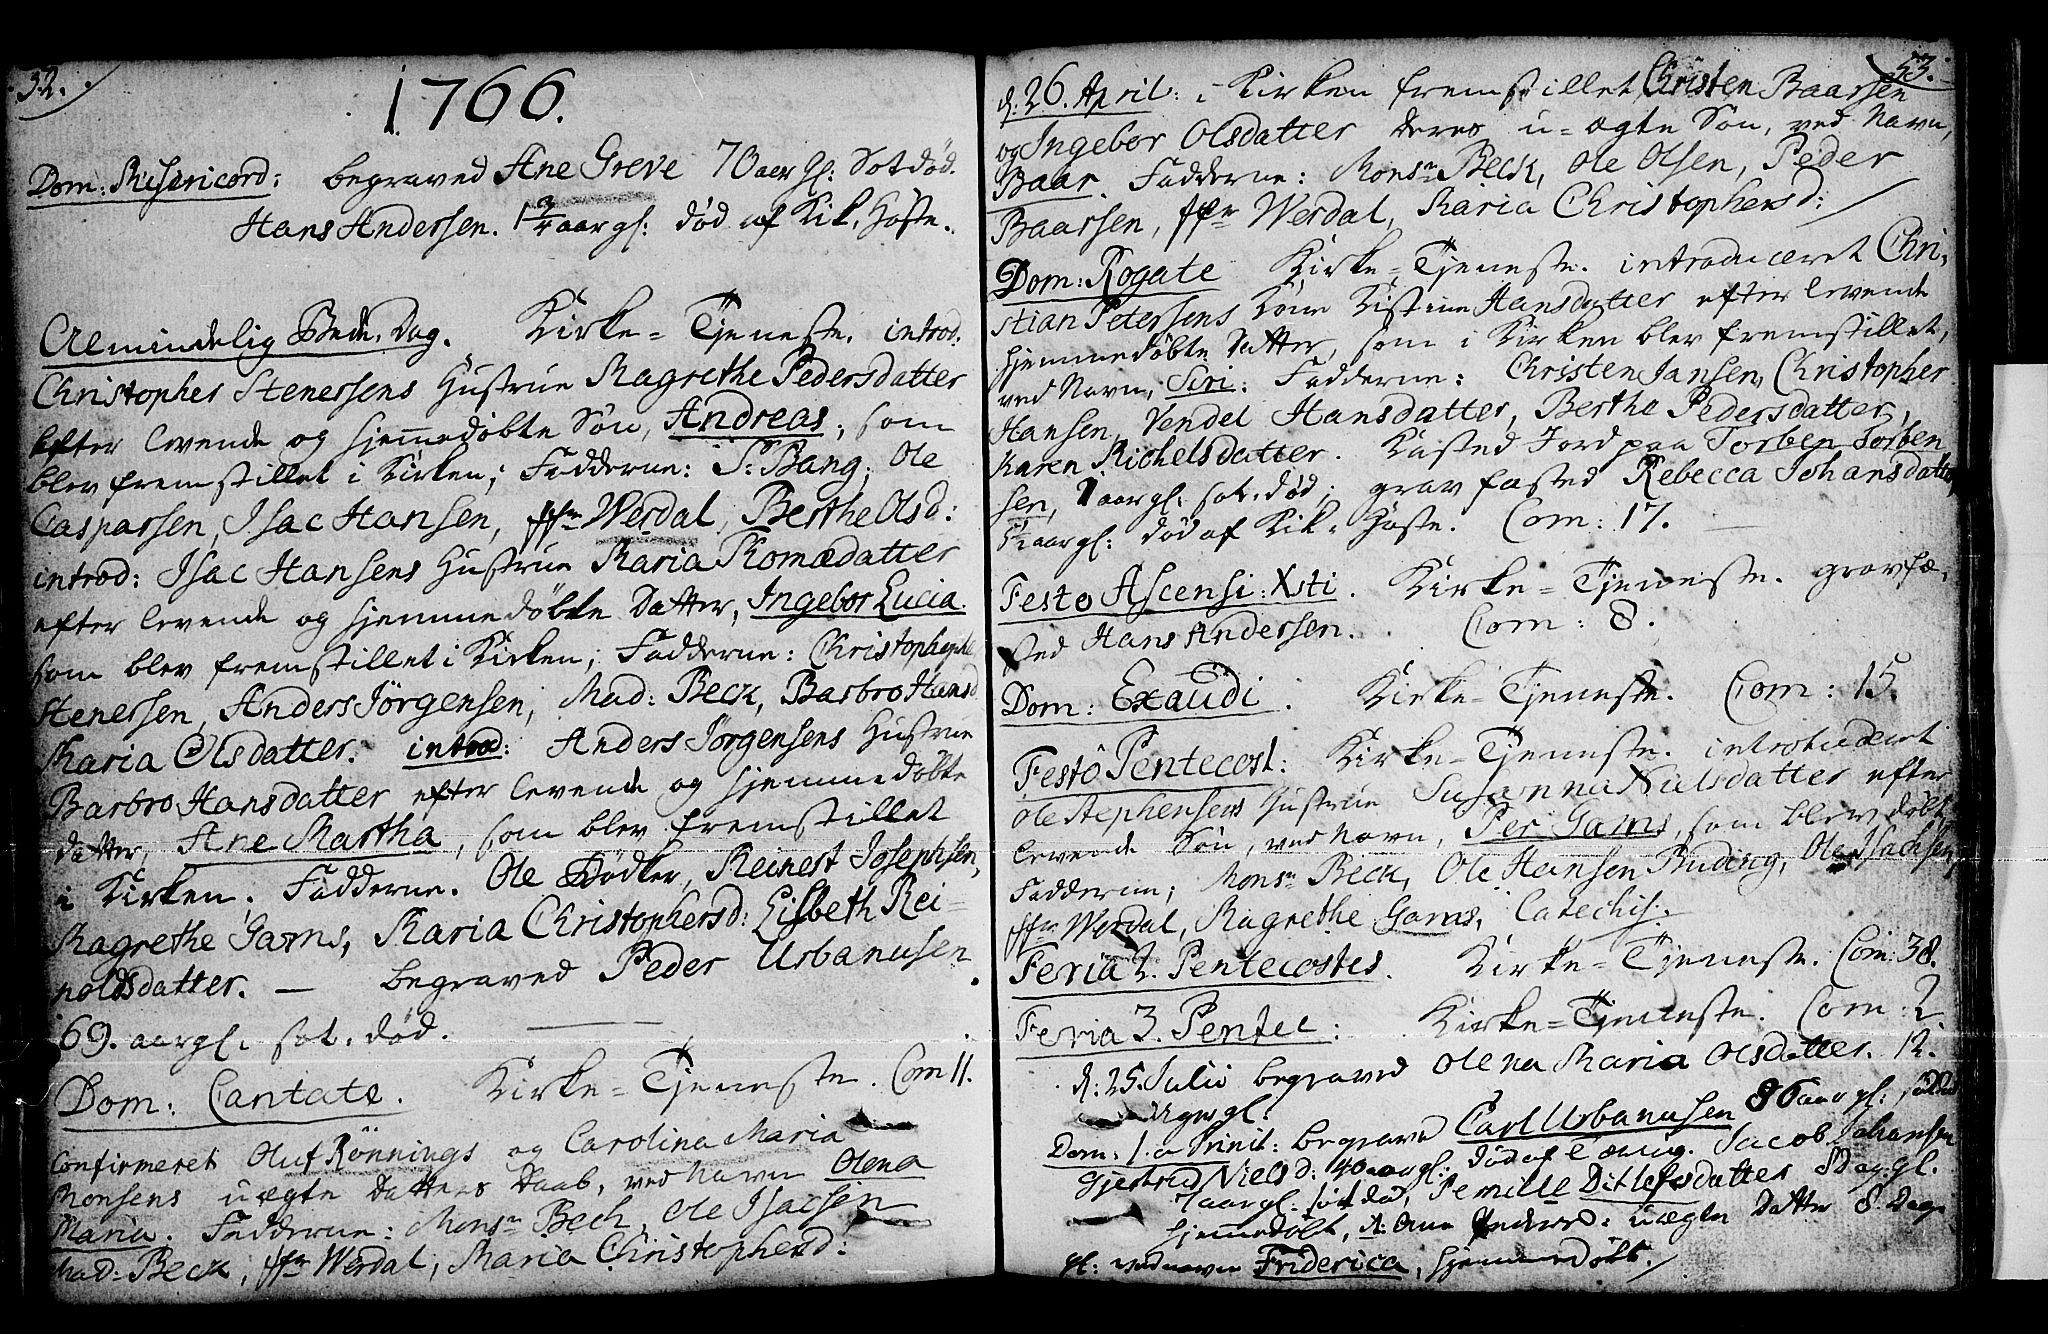 32.
1766.
Dom: Misericord: begraved Ane Greve 70 aar gl: Sotdød.
Hans Andersen. 1 3/4 aar gl: død af Kik. Hoste.
Almindelig Bede. Dag. Kirke-Tjeneste. introd:
Christopher Stenersens Hustrue Magrethe Pedersdatter
efter levende og hjemmedøbte Søn, Andreas, som
blev fremstillet i Kirken; Fadderne: Sr: Bang; Ole
Casparsen, Isac Hansen, Werdal, Berthe Olsd:
introd: Isac Hansens Hustrue Maria Thomædatter
efter levende og hjemmedøbte Datter, Ingebor Lucia.
som blev fremstillet i Kirken; Fadderne: Christopher
Stenersen, Anders Jörgensen, Mad: Beck, Barbro Hansd
Maria Olsdatter. introd: Anders Jörgensens Hustrue
Barbro Hansdatter efter levende og hjemmedøbte
datter, Ane Martha, som blev fremstillet
i Kirken. Fadderne. Ole Bödker, Reinert Josephsen,
Magrethe Gams, Maria Christophersd: Lisbeth Rei-
noldsdatter. — begraved Peder Urbanusen
69. aar gl. sot. død.
Dom: Cantate. Kirke-Tjeneste. Com 11.
Confirmeret Oluf Rönnings og Carolina Maria
Monsens uægte Datters Daab, ved Navn Olena
Maria. Fadderne: Monsr Beck, Ole Isachsen
Mad: Beck, Werdal, Maria Christophersd:
33.
d: 26. April: i Kirken fremstillet Christen Baarsen
og Ingebor Olsdatter deres u-ægte Søn, ved Navn,
Baar. Fadderne: Monsr Beck, Ole Olsen, Peder
Baarsen, Werdal, Maria Christophersd:
Dom: Rogate Kirke-Tjeneste. introduceret Chri-
stian Petersens Kone Kistine Hansdatter efter levende
hjemmedøbte Datter, som i Kirken blev fremstillet,
ved Navn, Siri: Fadderne: Christen Jansen, Christopher
Hansen, Vendel Hansdatter, Berthe Pedersdatter,
Karen Michelsdatter. Kasted Jord paa Torben Torben
sen, 1 aar gl. sot. død; grav fæsted Rebecca Johansdatter
aar gl: død af Kik-Hoste. Com: 17.
Festo Ascensi: Xsti. Kirke-Tjeneste. gravfæ-
sted Hans Andersen. Com: 8.
Dom: Exaudi. Kirke-Tjeneste. Com: 15.
Festo Pentecost: Kirke-Tjeneste. introduceret
Ole Stephensens Hustrue Susanna Nielsdatter efter
levende Søn, ved Navn, Per Gams, som blev døbt,
Fadderne; Monsr Beck, Ole Hansen Buding, Ole Isachsen
Werdal, Magrethe Gams, Catechis:
Feria 2. Pentecostes. Kirke-Tjeneste. Com: 38.
Feria 3. Pentec: Kirke-Tjeneste. Com: 2.
d: 25. Julii begraved Olena Maria Olsdatter. 12.
Uger gl:
Dom: 1. a Trinit: begrave Carl Urbanusen 86 aar gl:
Gjertrud Nielsd: 40 aar gl: død af Tæring. Jacob Johansen
7 aar gl: sot død, Pernille Ditlefsdatter 8 Dag: gl.
hjemmedøbt, uægte Datter 8. Dage
gl: ved Navn Friderica, hjemmedøbt.